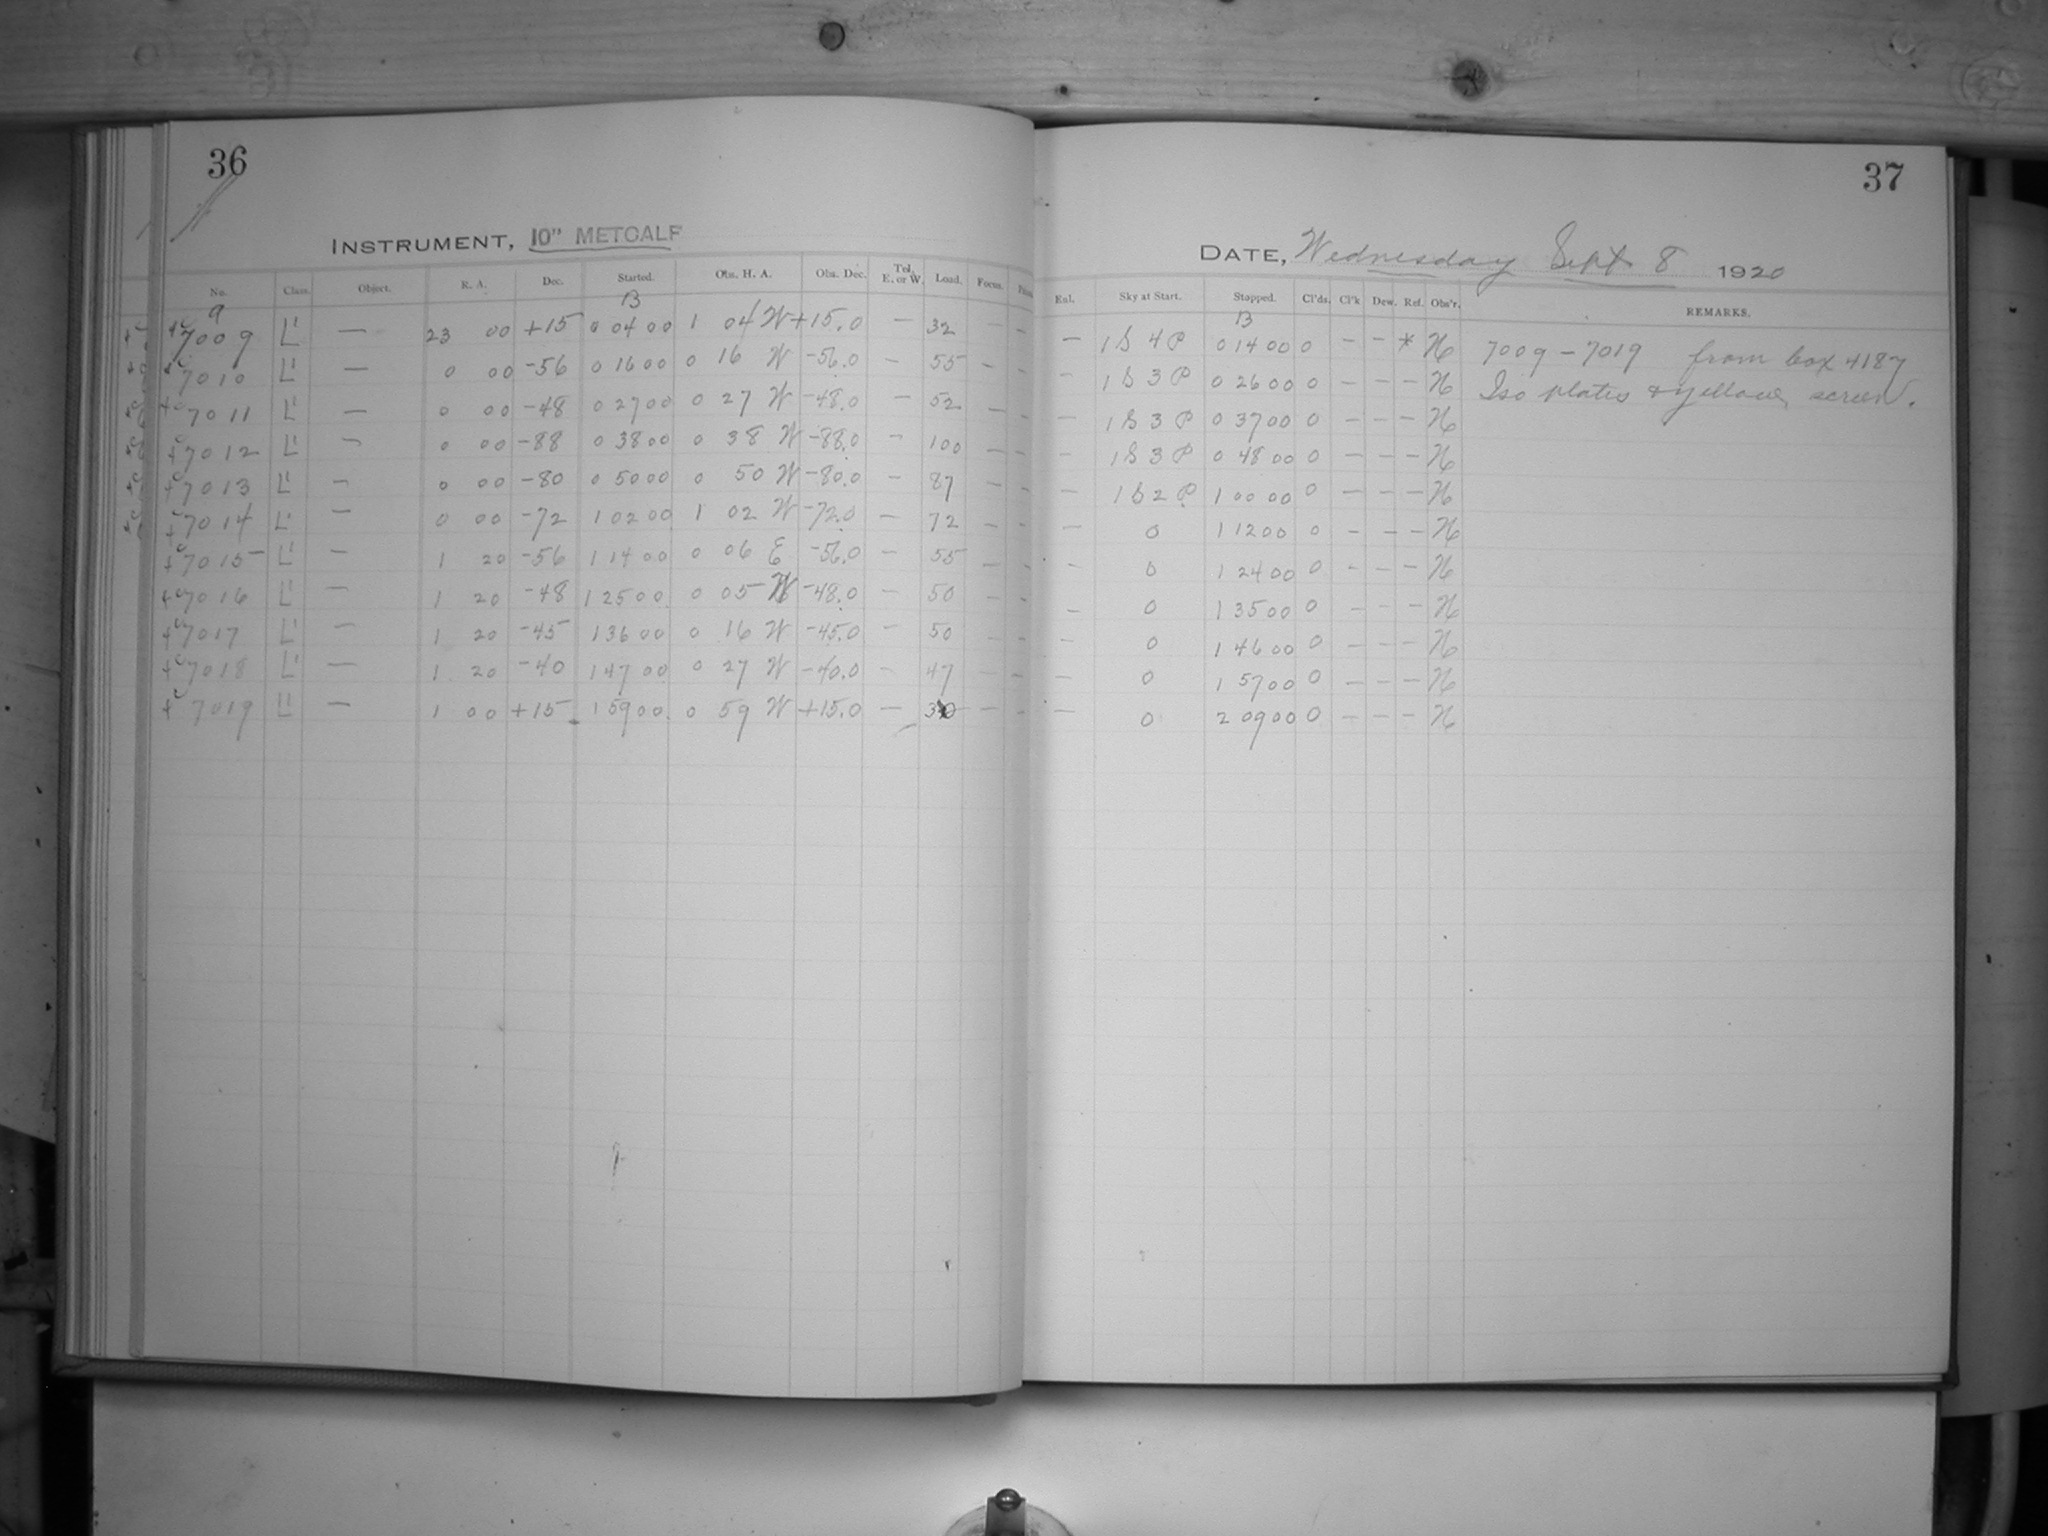 36
INSTRUMENT, 10" METCALF
No. Class. Object. R. A. Dec. Started. Obs. H. A. Obs. Dec. Tel. E. or W. Load. Focus.
a B
7009 L' — 23 00 +15 0 04 00 1 04 W +15.0 — 32 — —
7010 L' — 0 00 -56 0 16 00 0 16 W -56.0 — 55 — —
7011 L' — 0 00 -48 0 27 00 0 27 W -48.0 — 52 — —
7012 L' — 0 00 -88 0 38 00 0 38 W -88.0 — 100 — —
7013 L' — 0 00 -80 0 50 00 0 50 W -80.0 — 87 — —
7014 L' — 0 00 -72 1 02 00 1 02 W -72.0 — 72 — —
7015 L' — 1 20 -56 1 14 00 0 06 E -56.0 — 55 — —
7016 L' — 1 20 -48 1 25 00 0 05 W -48.0 — 50 — —
7017 L' — 1 20 -45 1 36 00 0 16 W -45.0 — 50 — —
7018 L' — 1 20 -40 1 47 00 0 27 W -40.0 — 47 — —
7019 L' — 1 00 +15 1 59 00 0 59 W +15.0 — 30 — —
37
DATE, Wednesday Sept 8 1920
Eul. Sky at Start. Stopped. Cl'ds. Cl'k Dew. Ref. Obs'r. REMARKS.
B
— 1 S 4 P 0 14 00 0 — — * H 7009 - 7019 from box 4187
— 1 S 3 P 0 26 00 0 — — — H Iso plates & yellow screen.
— 1 S 3 P 0 37 00 0 — — — H
— 1 S 3 P 0 48 00 0 — — — H
— 1 S 2 P 1 00 00 0 — — — H
— 0 1 12 00 0 — — — H
— 0 1 24 00 0 — — — H
— 0 1 35 00 0 — — — H
— 0 1 46 00 0 — — — H
— 0 1 57 00 0 — — — H
— 0 2 09 00 0 — — — H